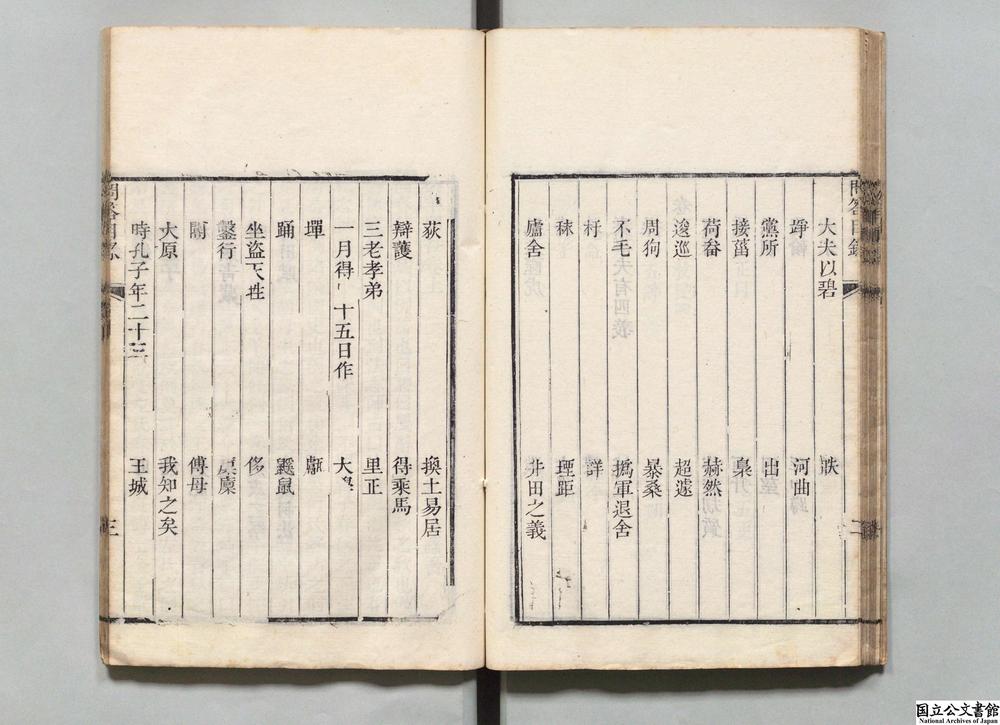 問答目錄
大夫以碧 戕
竫 河曲
黨所 出
接菑 梟
荷畚 赫然
逡巡 超遽
周狗 暴桑
不毛 撝軍退舍
杅 詳
秣 堙距
廬舍 井田之義
二
荻 換土易居
辯護 得乘馬
三老孝弟 里正
一月得 十五日作 大
墠 甗
踊 鼷鼠
坐盜天牲 侈
鑿行
閽 傅母
大原 我知之矣
時孔子年二十三 王城
三
国立公文書館
National Archives of Japan